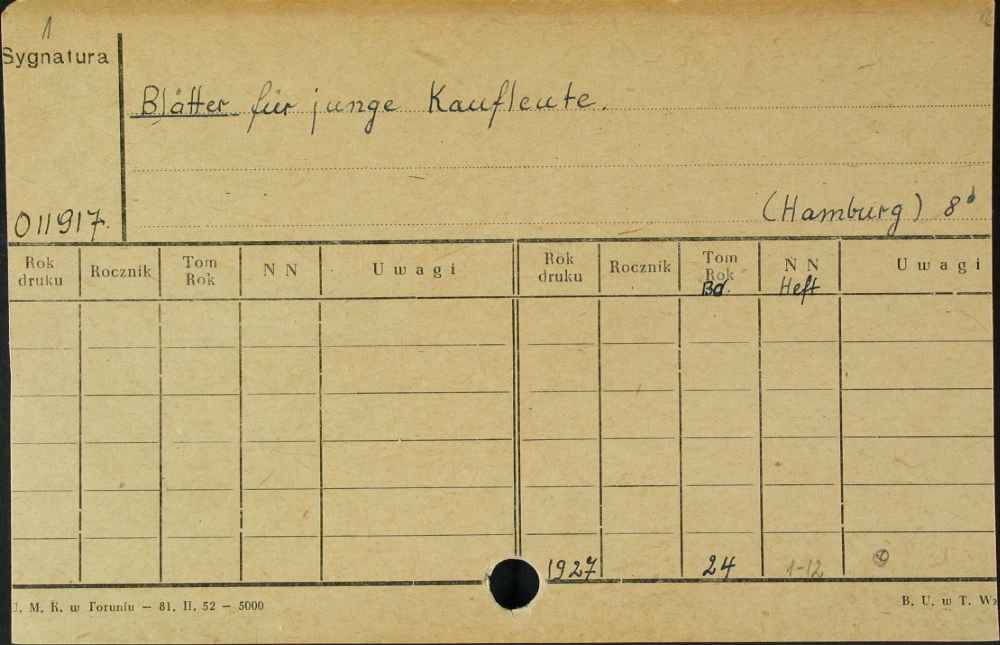 1
Sygnatura
Blätter für junge Kaufleute.
(Hamburg) 8°
011917.
Rok druku Rocznik Tom Rok N N Uwagi Rok druku Rocznik Tom Rok N N Uwagi
Bd. Heft
1927 24 1-12
M. K. w Toruniu – 81. II. 52 – 5000
B. U. w T. Wz